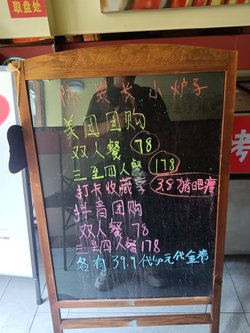 取盘处
陈荣长小炉子
美团团购
双人餐 78
三至四人餐 178
打卡收藏享 38猪肥瘦
抖音团购
双人餐 78
三至四人餐 178
各有39.9代50元代金券
考